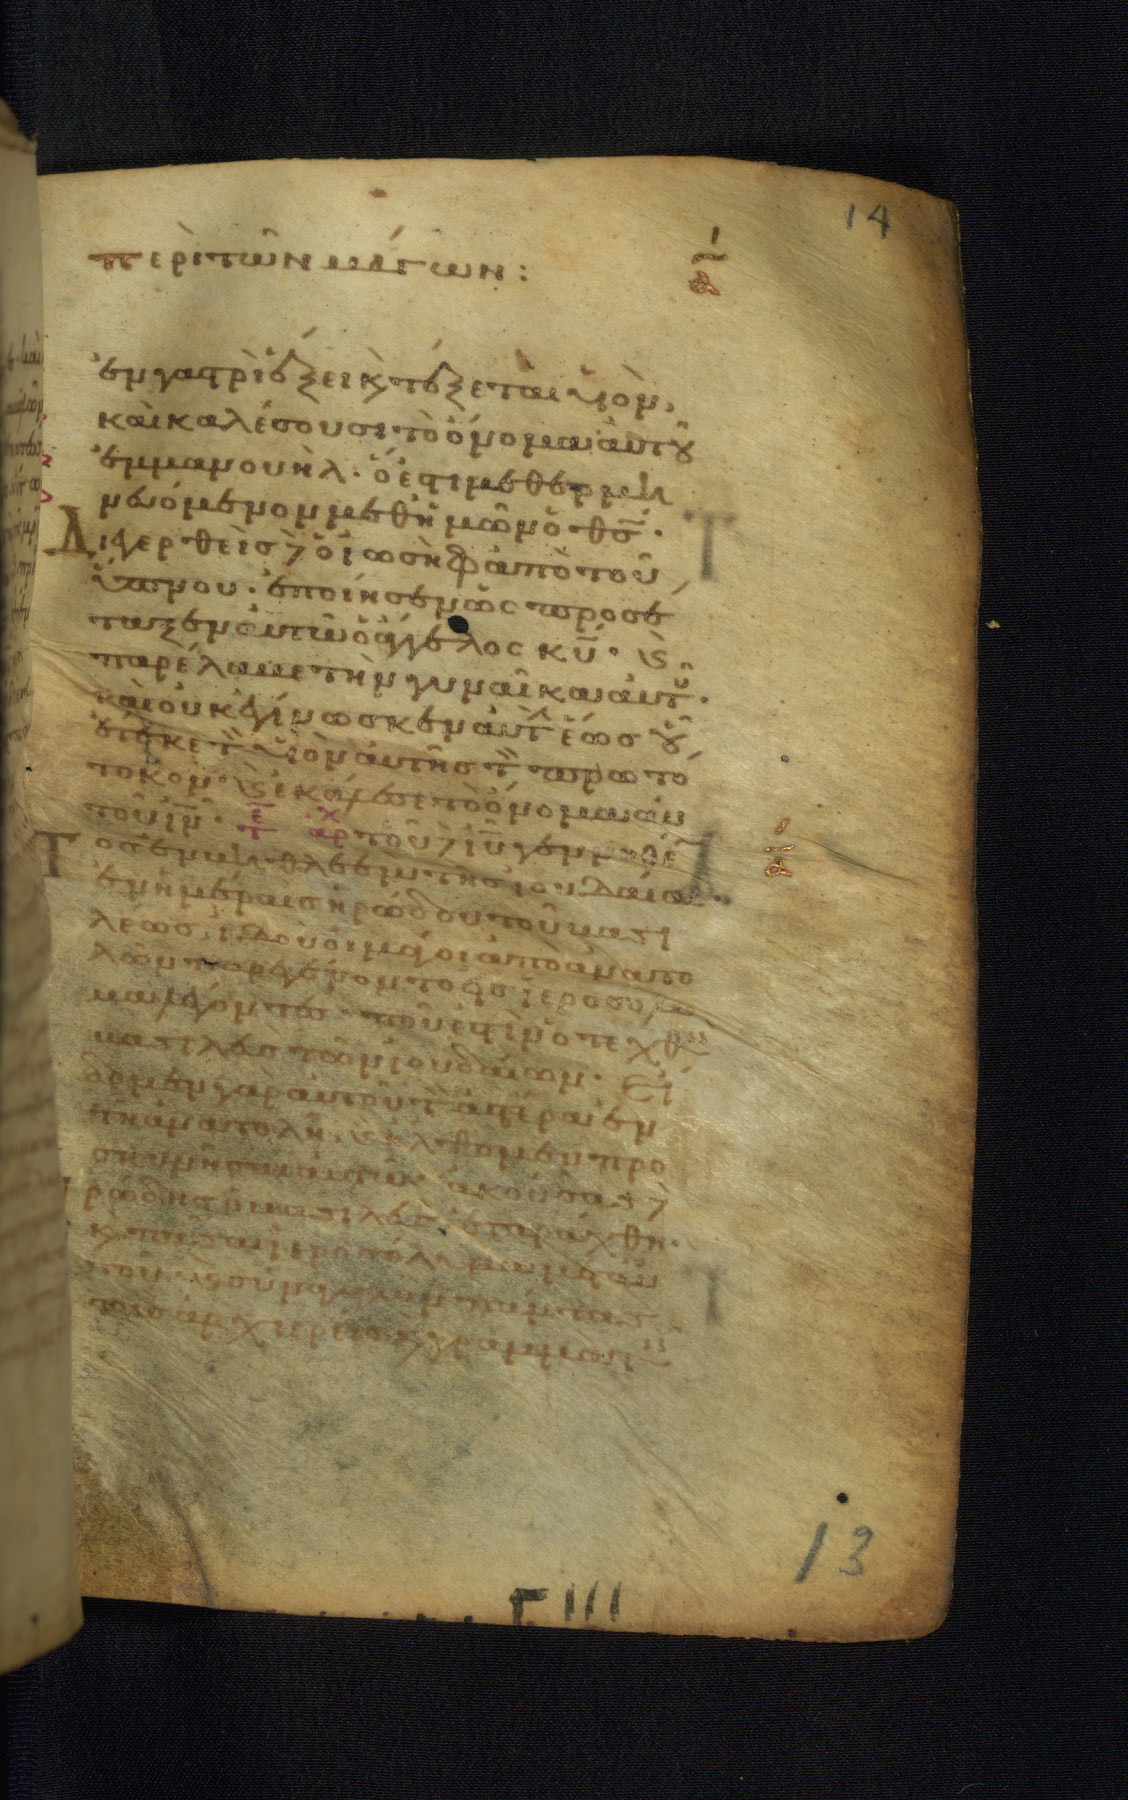 14
περὶ τῶν μάγων:
ἐν γαστρὶ ἕξει κ(αὶ) τέξεται υἱὸν,
καὶ καλέσουσι τὸ ὄνομα αὐτοῦ
ἐμμανουὴλ· ὅ ἐστι μεθερμη
νευόμενον μεθ' ἡμῶν ὁ θ(εό)ς·
Διεγερθεὶς δὲ ὁ ἰωσὴφ ἀπὸ τοῦ
ὕπνου· ἐποίησεν ὡς προσέ
ταξεν αὐτῶ ὁ ἄγγελος κ(υρίο)υ· κ(αὶ)
παρέλαβε τὴν γυναῖκα αὐτοῦ·
καὶ οὐκ ἐγίνωσκεν αὐτὴν ἕως οὗ
ἔτεκε τὸν υἱὸν αὐτῆς τὸν πρωτό
τοκον· κ(αὶ) ἐκάλεσε τὸ ὄνομα αὐ
τοῦ ἰ(ησοῦ)ν· τοῦ δὲ ἰ(ησο)ῦ γεννηθέ(ν)
τος ἐν βηθλεὲμ τῆς ἰουδαίας·
ἐν ἡμέραις ἡρώδου τοῦ βασι
λέως, ἰδοὺ μάγοι ἀπὸ ἀνατο
λῶν παρεγένοντο εἰς ἱεροσόλυ
μα λέγοντες· ποῦ ἐστὶν ὁ τεχθεὶς
βασιλεὺς τῶν ἰουδαίων· εἴ
δομεν γὰρ αὐτοῦ τὸν ἀστέρα ἐν
τῇ ἀνατολῇ, κ(αὶ) ἤλθομεν προ
σκυνῆσαι αὐτῶ· ἀκούσας δὲ
ἡρώδης ὁ βασιλεὺς ἐταράχθη·
κ(αὶ) πᾶσα ἱεροσόλυμα μετ' αὐ
τοῦ· κ(αὶ) συναγαγὼν πάντας
τοὺς ἀρχιερεῖς κ(αὶ) γραμματεῖς
13